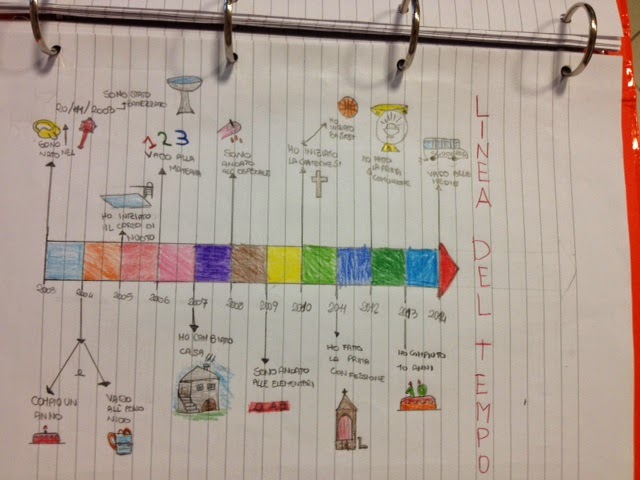 LINEA DEL TEMPO
SONO STATO
BATTEZZATO
20/11/2003
SONO
NATO NEL
1 2 3
VADO ALLA
MATERNA
HO INIZIATO
IL CORSO DI
NUOTO
SONO
ANDATO
ALL'OSPEDALE
HO INIZIATO
HO
INIZIATO
BASKET
HO FATTO
LA PRIMA
COMUNIONE
VADO ALLE
MEDIE
2003 2004 2005 2006 2007 2008 2009 2010 2011 2012 2013 2014
e
COMPIO UN
ANNO
VADO
ALL'ASILO
NIDO
HO CAMBIATO
CASA
SONO ANDATO
ALLE ELEMENTARI
HO FATTO
LA PRIMA
CONFESSIONE
HO COMPIUTO
10 ANNI
10